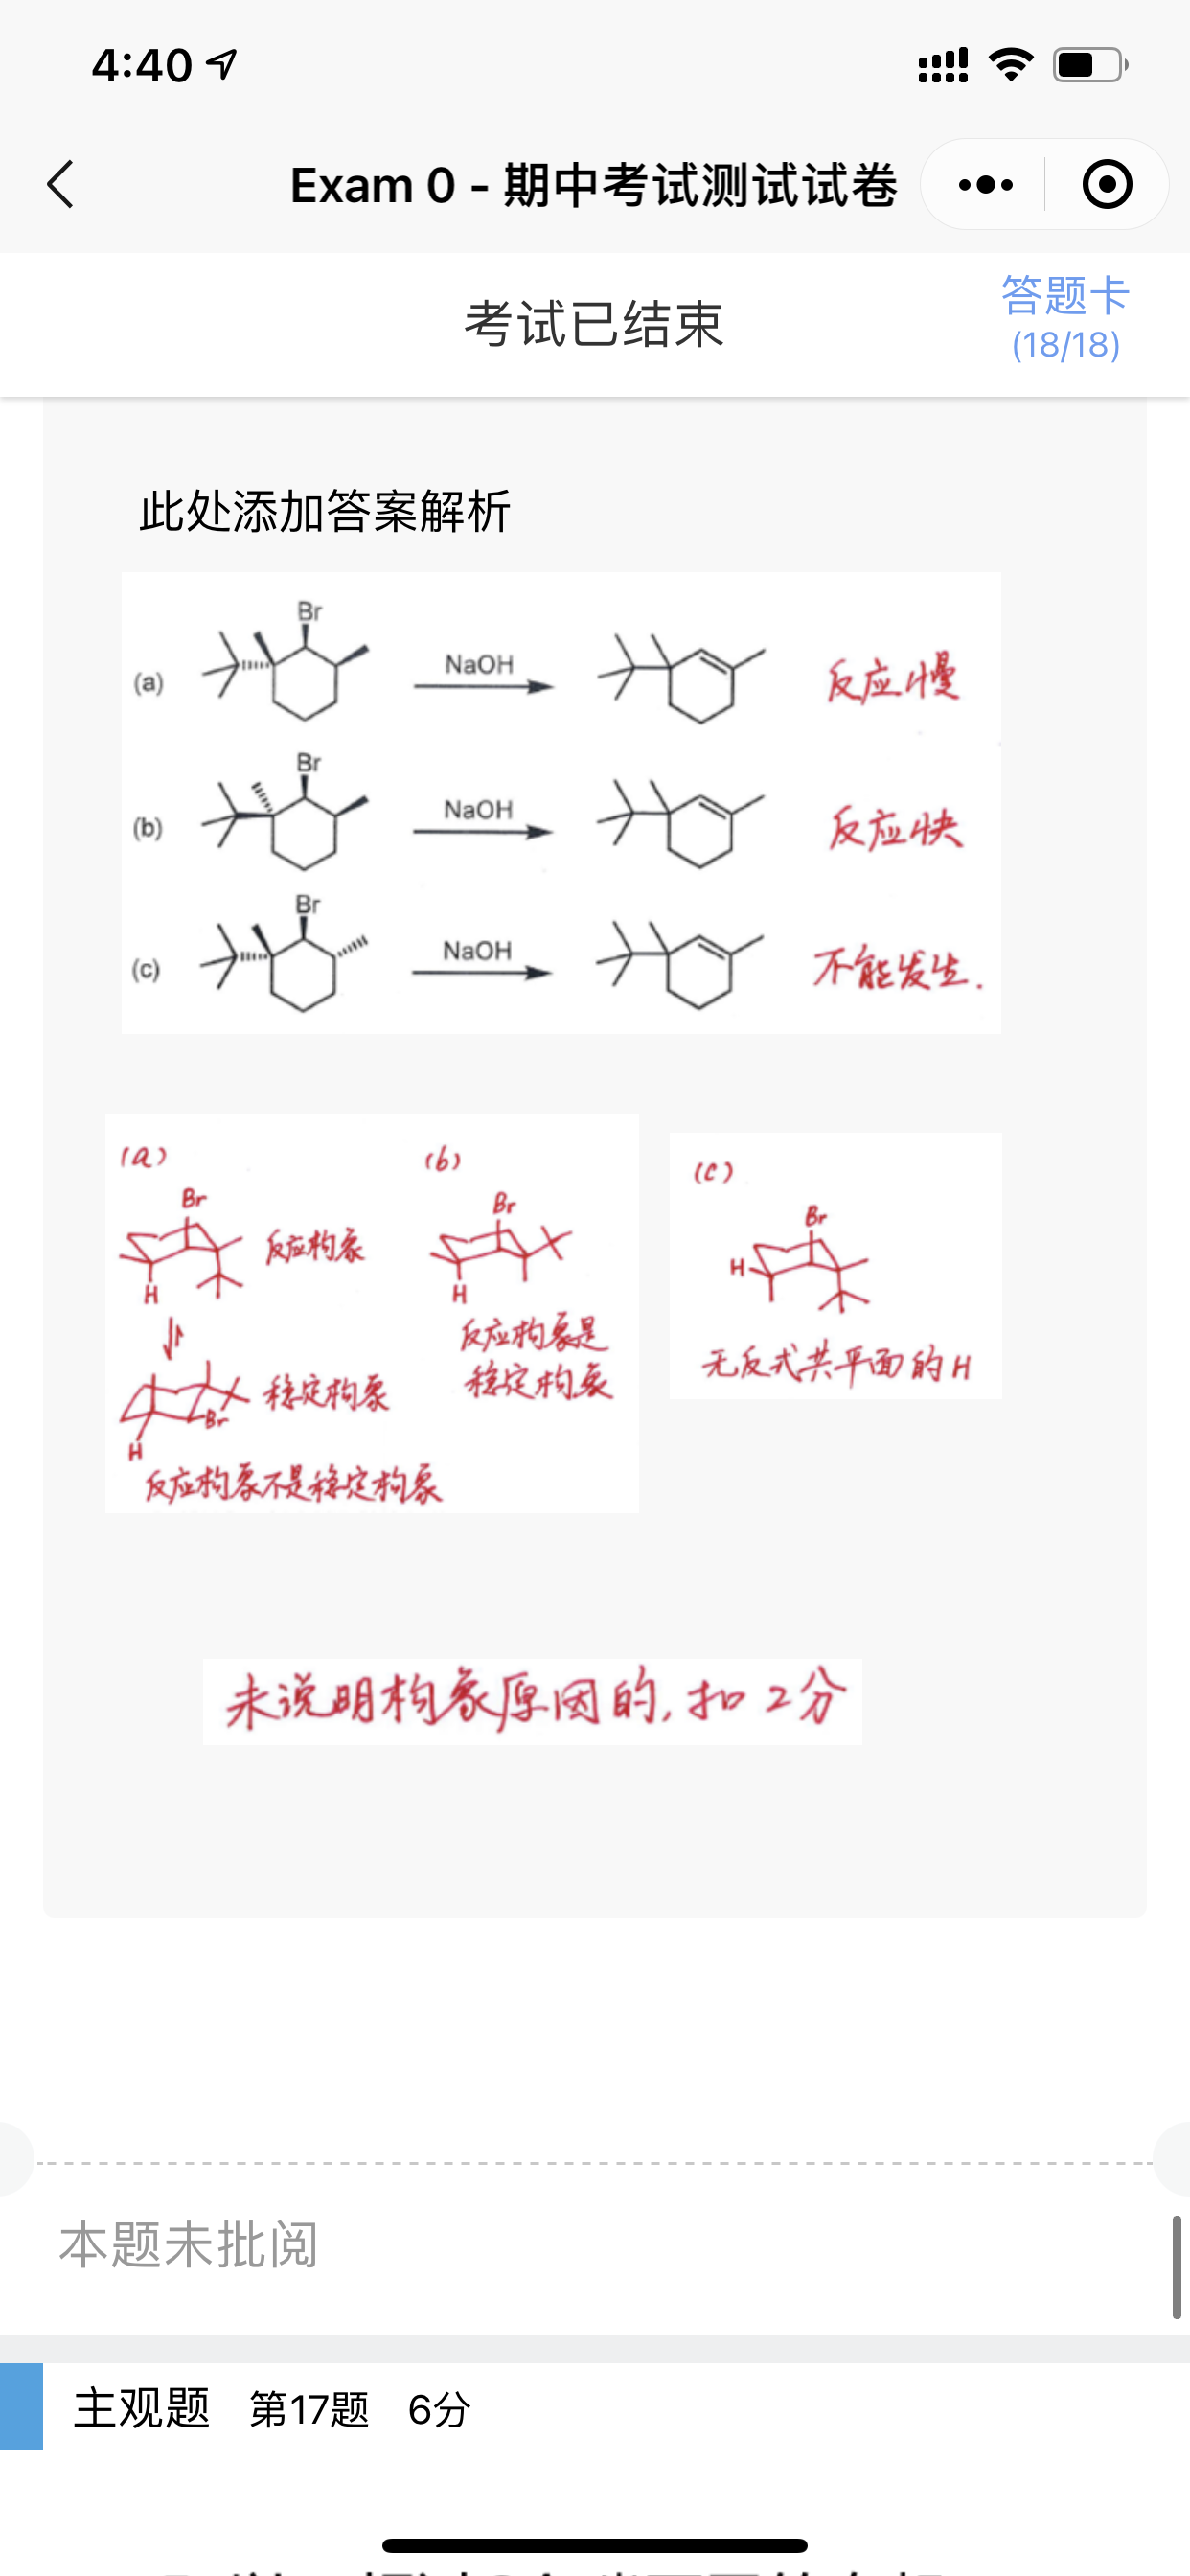 4:40
Exam 0 - 期中考试测试试卷
考试已结束
答题卡
(18/18)
此处添加答案解析
Br
(a)
NaOH
反应慢
Br
(b)
NaOH
反应快
Br
(c)
NaOH
不能发生.
(a)
Br
反应构象
H
稳定构象
Br
H
反应构象不是稳定构象
(b)
Br
H
反应构象是
稳定构象
(c)
Br
H
无反式共平面的H
未说明构象原因的,扣2分
本题未批阅
主观题 第17题 6分